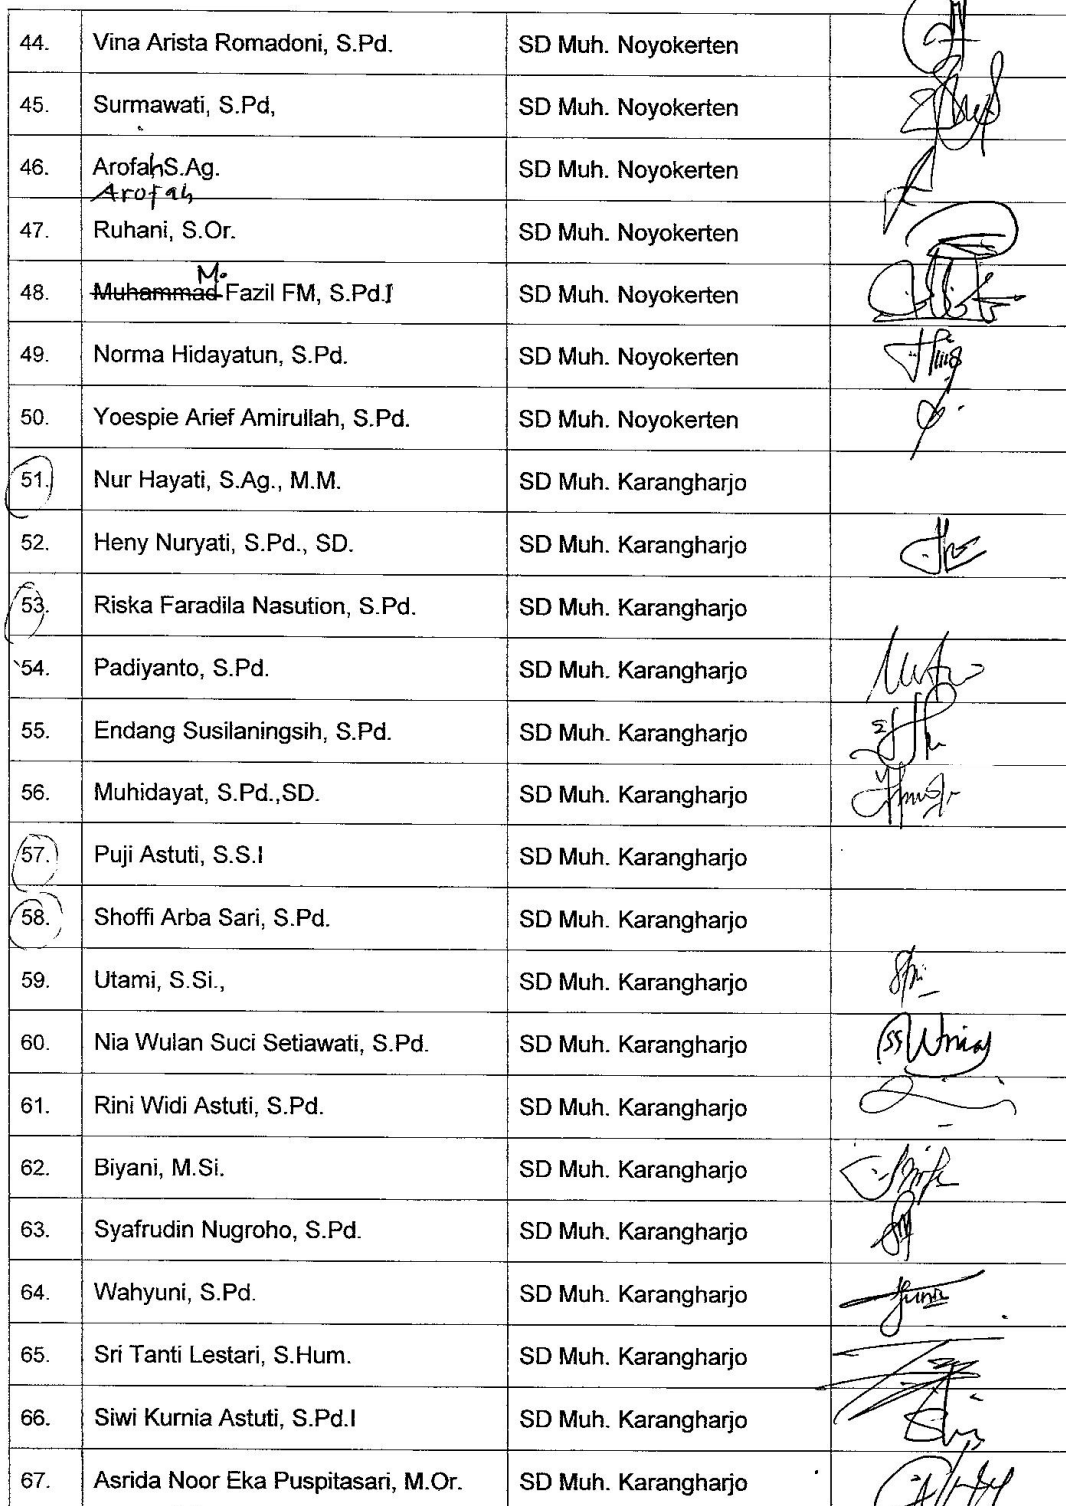 44. Vina Arista Romadoni, S.Pd. SD Muh. Noyokerten
45. Surmawati, S.Pd, SD Muh. Noyokerten
46. ArofahS.Ag. SD Muh. Noyokerten
Arofah
47. Ruhani, S.Or. SD Muh. Noyokerten
M.
48. Muhammad Fazil FM, S.Pd.I SD Muh. Noyokerten
49. Norma Hidayatun, S.Pd. SD Muh. Noyokerten
50. Yoespie Arief Amirullah, S.Pd. SD Muh. Noyokerten
51. Nur Hayati, S.Ag., M.M. SD Muh. Karangharjo
52. Heny Nuryati, S.Pd., SD. SD Muh. Karangharjo
53. Riska Faradila Nasution, S.Pd. SD Muh. Karangharjo
54. Padiyanto, S.Pd. SD Muh. Karangharjo
55. Endang Susilaningsih, S.Pd. SD Muh. Karangharjo
56. Muhidayat, S.Pd.,SD. SD Muh. Karangharjo
57. Puji Astuti, S.S.I SD Muh. Karangharjo
58. Shoffi Arba Sari, S.Pd. SD Muh. Karangharjo
59. Utami, S.Si., SD Muh. Karangharjo
60. Nia Wulan Suci Setiawati, S.Pd. SD Muh. Karangharjo
61. Rini Widi Astuti, S.Pd. SD Muh. Karangharjo
62. Biyani, M.Si. SD Muh. Karangharjo
63. Syafrudin Nugroho, S.Pd. SD Muh. Karangharjo
64. Wahyuni, S.Pd. SD Muh. Karangharjo
65. Sri Tanti Lestari, S.Hum. SD Muh. Karangharjo
66. Siwi Kurnia Astuti, S.Pd.I SD Muh. Karangharjo
67. Asrida Noor Eka Puspitasari, M.Or. SD Muh. Karangharjo